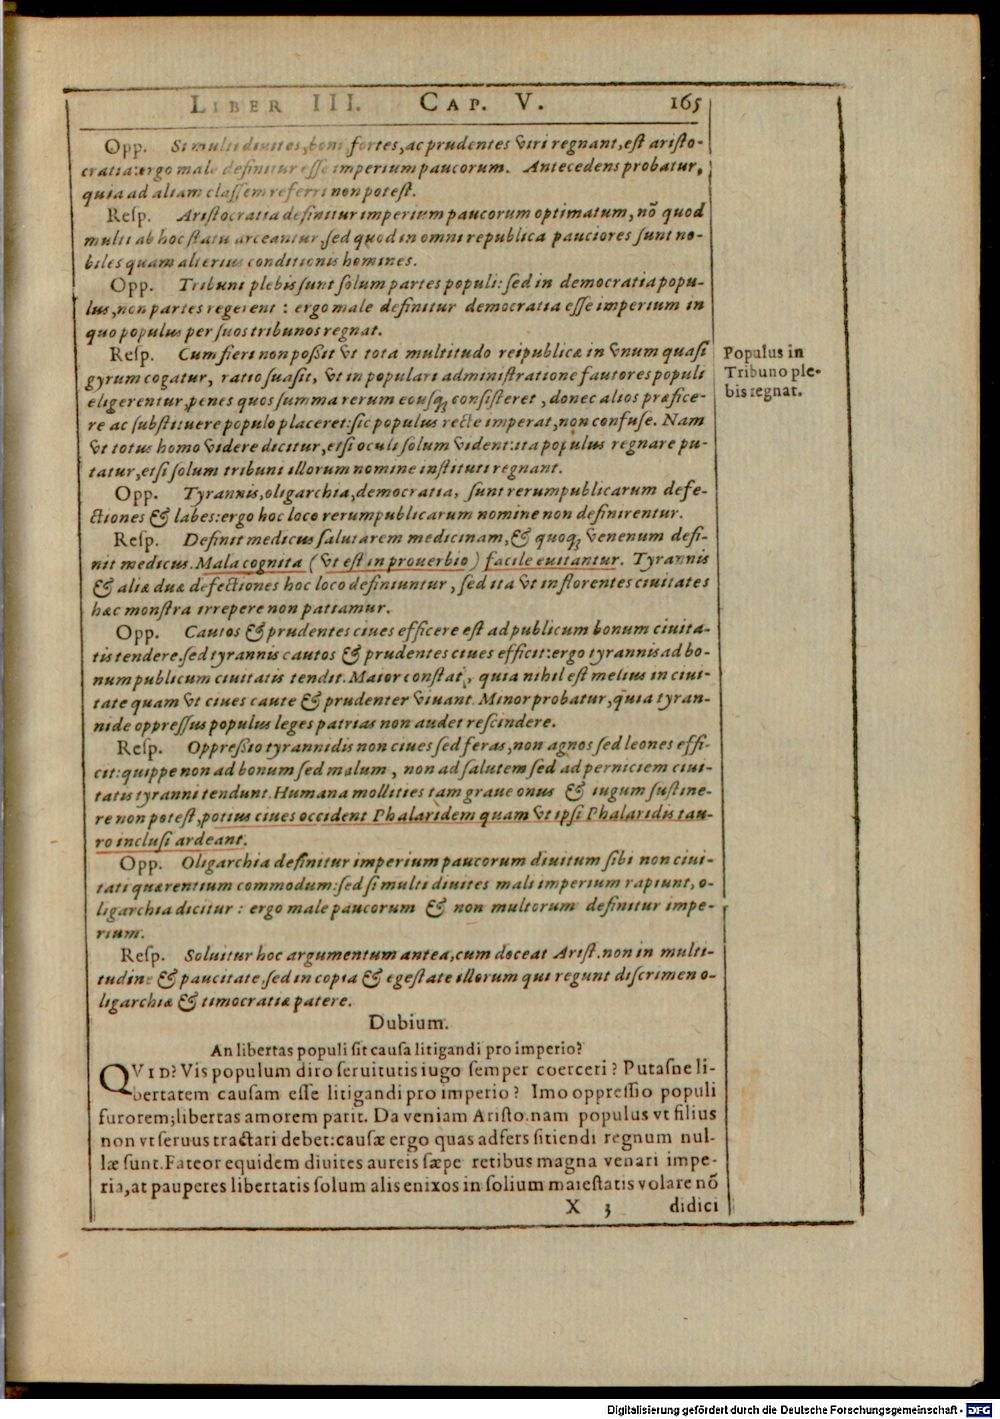 LIBER III. CAP. V. 165
Opp. Si multi diuites, boni fortes, ac prudentes viri regnant, est aristo-
cratia: ergo male definitur esse imperium paucorum. Antecedens probatur,
quia ad aliam classem referri non potest.
Resp. Aristocratia definitur imperium paucorum optimatum, nõ quod
multi ab hoc statu arceantur, sed quod in omni republica pauciores sunt no-
biles quam alterius conditionis homines.
Opp. Tribuni plebis sunt solum partes populi: sed in democratia popu-
lus, non partes regerent: ergo male definitur democratia esse imperium in
quo populus per suos tribunos regnat.
Resp. Cum fieri non poßit vt tota multitudo reipublicæ in vnum quasi
gyrum cogatur, ratio suasit, vt in populari administratione fautores populi
eligerentur, penes quos summa rerum eousq; consisteret, donec alios præfice-
re ac substituere populo placeret: sic populus recte imperat, non confuse. Nam
vt totus homo videre dicitur, etsi oculi solum vident: ita populus regnare pu-
tatur, etsi solum tribuni illorum nomine instituti regnant.
Populus in
Tribuno ple-
bis regnat.
Opp. Tyrannis, oligarchia, democratia, sunt rerumpublicarum defe-
ctiones & labes: ergo hoc loco rerumpublicarum nomine non definirentur.
Resp. Definit medicus salutarem medicinam, & quoq; venenum defi-
nit medicus. Mala cognita (vt est in prouerbio) facile euitantur. Tyrannis
& aliæ duæ defectiones hoc loco definiuntur, sed ita vt in florentes ciuitates
hæc monstra irrepere non patiamur.
Opp. Cautos & prudentes ciues efficere est ad publicum bonum ciuita-
tis tendere. sed tyrannis cautos & prudentes ciues efficit: ergo tyrannis ad bo-
num publicum ciuitatis tendit. Maior constat, quia nihil est melius in ciui-
tate quam vt ciues caute & prudenter viuant. Minor probatur, quia tyran-
nide oppressus populus leges patrias non audet rescindere.
Resp. Oppreßio tyrannidis non ciues sed feras, non agnos sed leones effi-
cit: quippe non ad bonum sed malum, non ad salutem sed ad perniciem ciui-
tatis tyranni tendunt. Humana mollities tam graue onus & iugum sustine-
re non potest, potius ciues occident Phalaridem quam vt ipsi Phalaridis tau-
ro inclusi ardeant.
Opp. Oligarchia definitur imperium paucorum diuitum sibi non ciui-
tati quærentium commodum: sed si multi diuites mali imperium rapiunt, o-
ligarchia dicitur: ergo male paucorum & non multorum definitur impe-
rium.
Resp. Soluitur hoc argumentum antea, cum doceat Arist. non in multi-
tudine & paucitate, sed in copia & egestate illorum qui regunt discrimen o-
ligarchiæ & timocratiæ patere.
Dubium.
An libertas populi sit causa litigandi pro imperio?
QVID? Vis populum diro seruitutis iugo semper coerceri? Putasne li-
bertatem causam esse litigandi pro imperio? Imo oppressio populi
furorem; libertas amorem parit. Da veniam Aristo. nam populus vt filius
non vt seruus tractari debet: causæ ergo quas adfers sitiendi regnum nul-
læ sunt. Fateor equidem diuites aureis sæpe retibus magna venari impe-
ria, at pauperes libertatis solum alis enixos in solium maiestatis volare nõ
X 3 didici
Digitalisierung gefördert durch die Deutsche Forschungsgemeinschaft - DFG